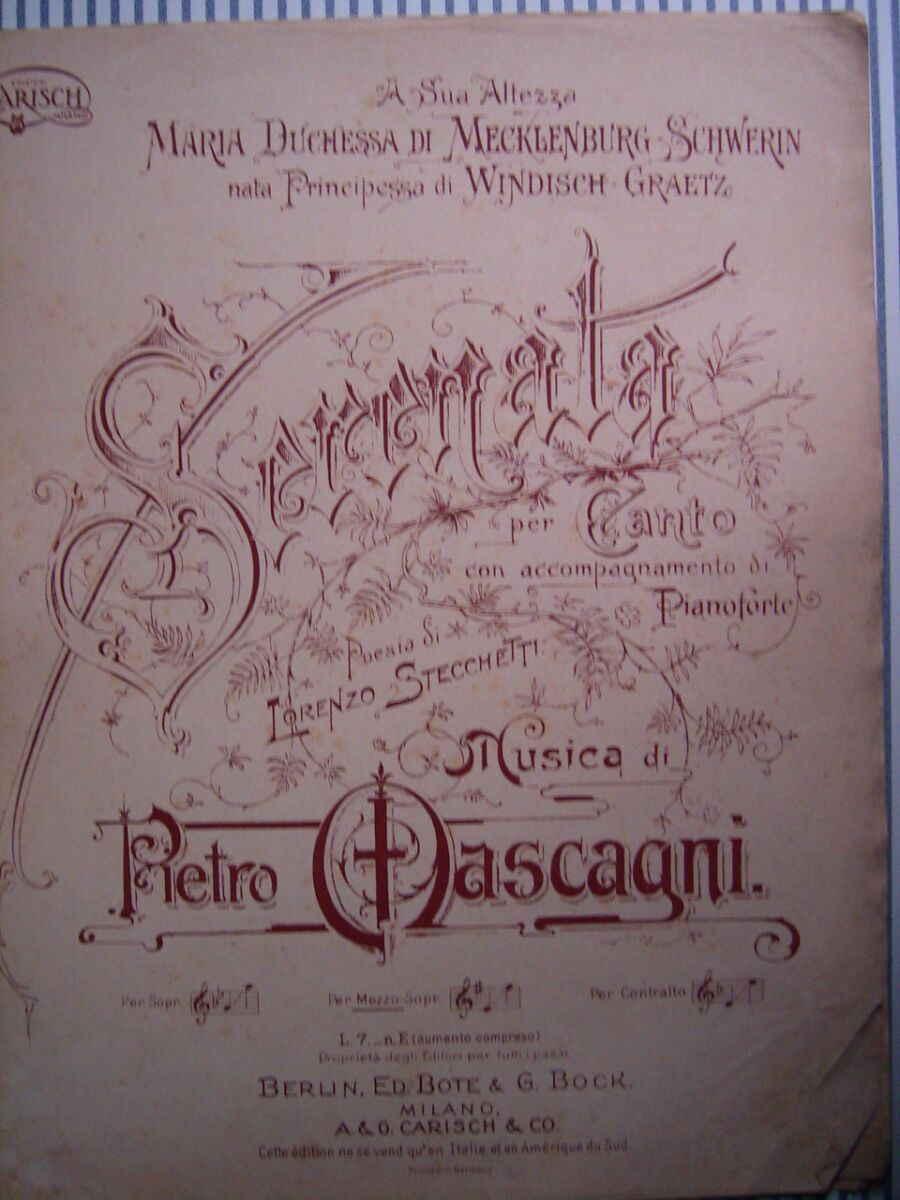 ARISCH
A Sua Altezza
MARIA DUCHESSA DI MECKLENBURG-SCHWERIN
nata Principessa di WINDISCH-GRAETZ
Serenata
per Canto
con accompagnamento di
Pianoforte
Poesia di
LORENZO STECCHETTI.
Musica di
Pietro Mascagni.
Per Sopr. Per Mezzo-Sopr. Per Contralto
L. 7._ n. E (aumento compreso)
Proprietà degli Editori per tutti i paesi.
BERLIN, ED. BOTE & G. BOCK.
MILANO,
A. & O. CARISCH & CO.
Cette édition ne se vend qu'en Italie et en Amérique du Sud.